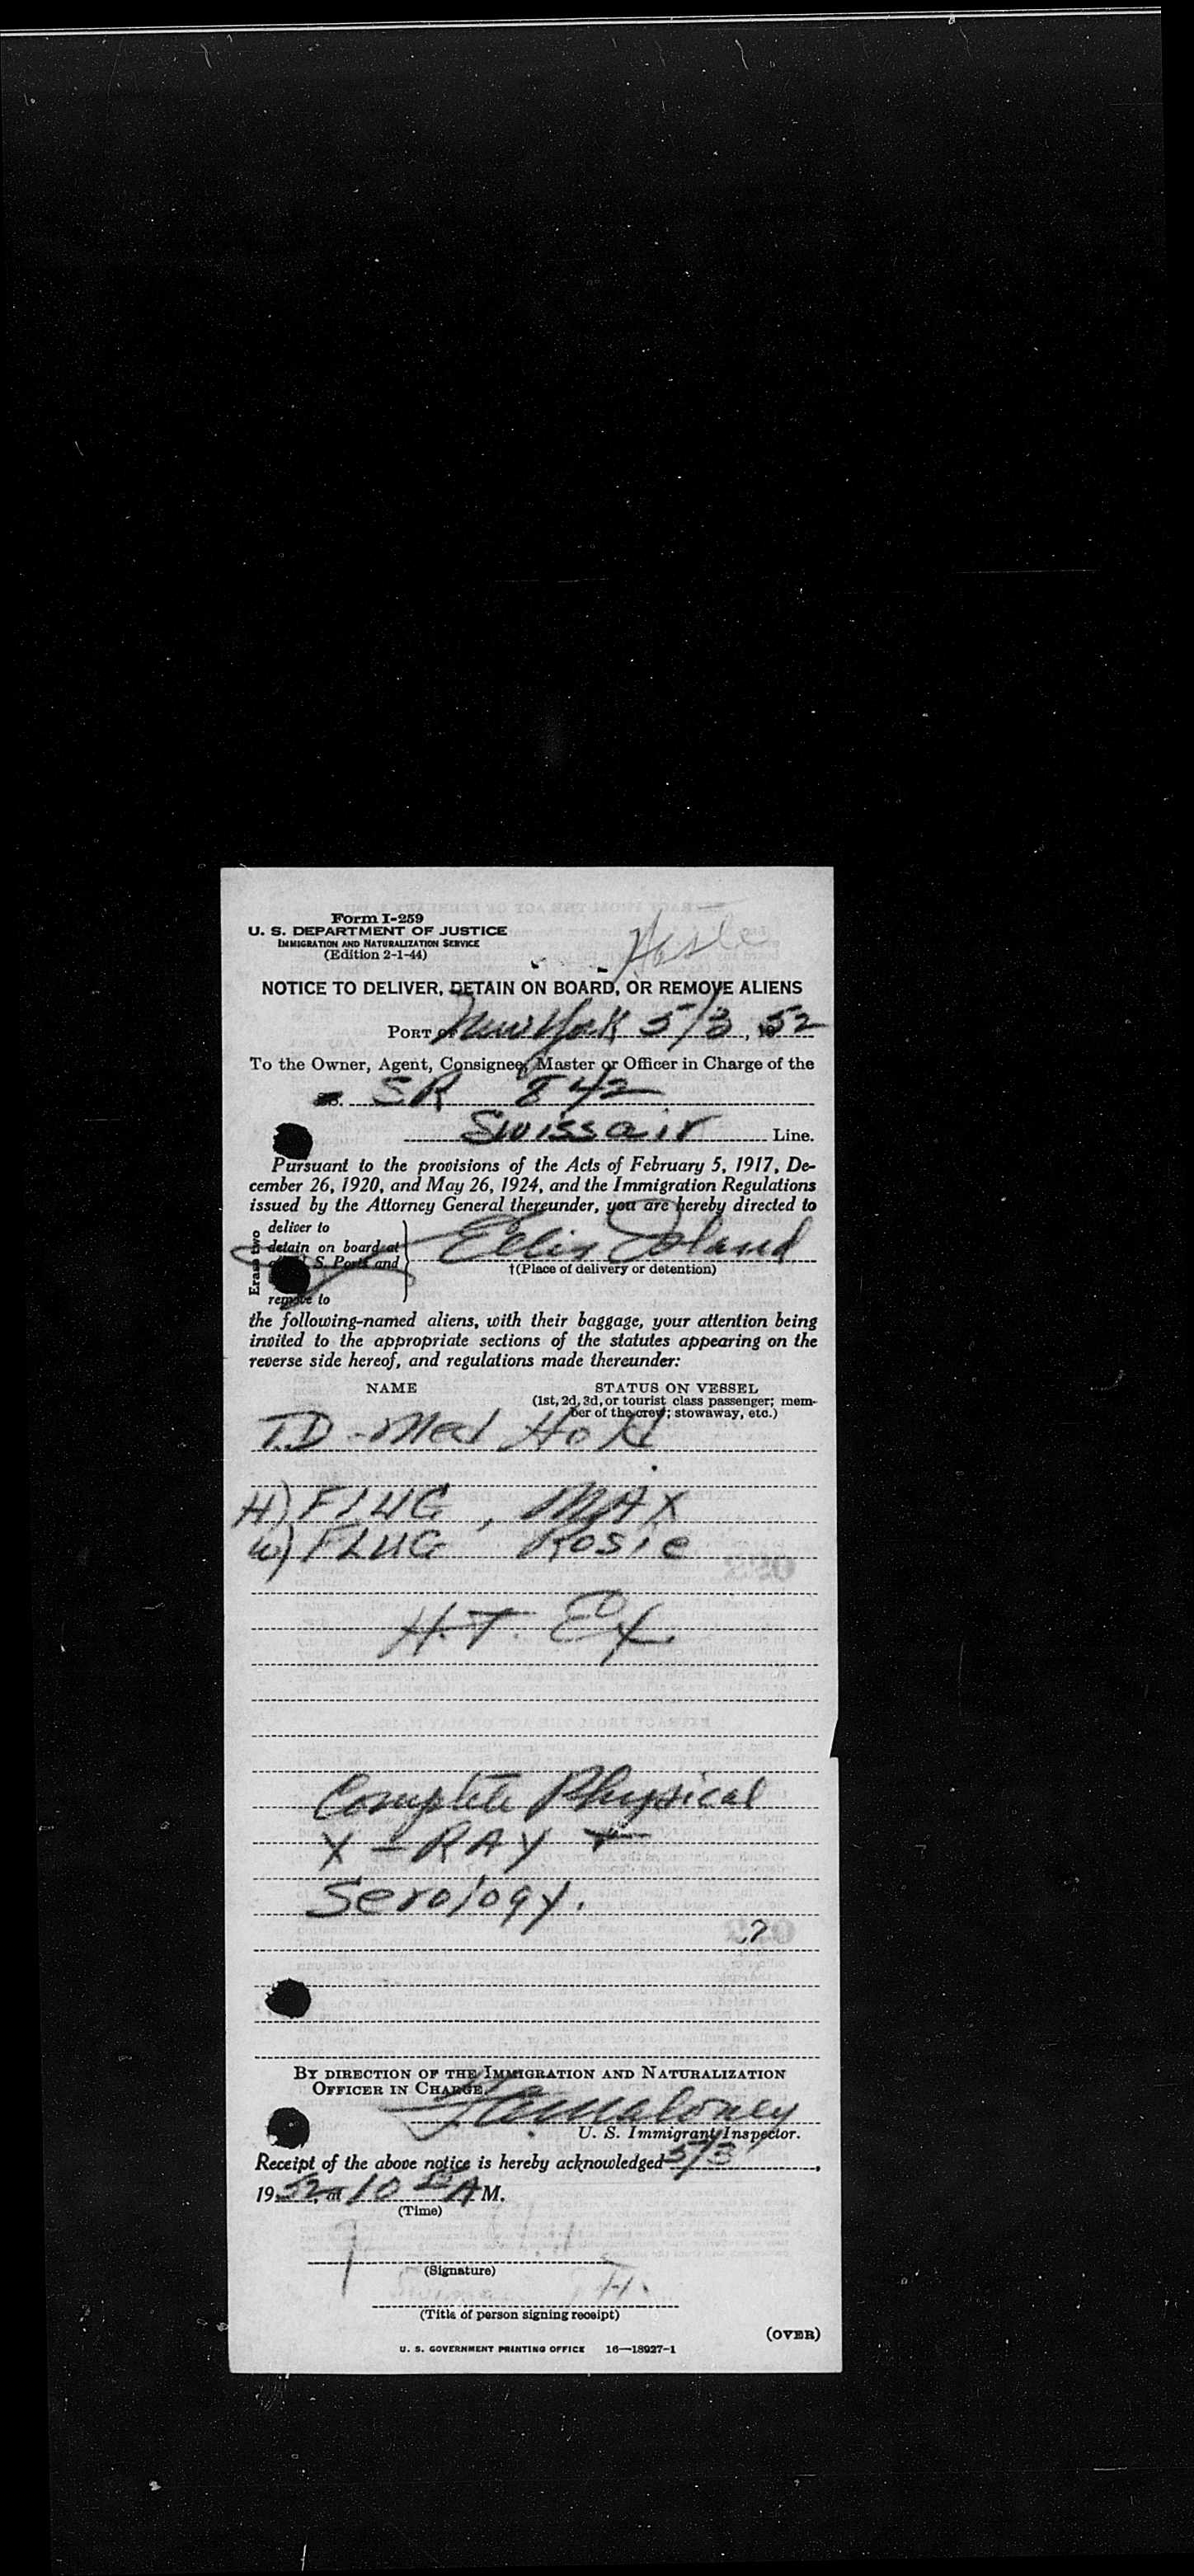 Form I-259
U. S. DEPARTMENT OF JUSTICE
IMMIGRATION AND NATURALIZATION SERVICE
(Edition 2-1-44)
NOTICE TO DELIVER, DETAIN ON BOARD, OR REMOVE ALIENS
PORT OF New York 5/3, 1952
To the Owner, Agent, Consignee, Master or Officer in Charge of the
SR 842
Swissair Line.
Pursuant to the provisions of the Acts of February 5, 1917, De-
cember 26, 1920, and May 26, 1924, and the Immigration Regulations
issued by the Attorney General thereunder, you are hereby directed to
Erase two
deliver to
detain on board at
S. Ports and
remove to
Ellis Island
†(Place of delivery or detention)
the following-named aliens, with their baggage, your attention being
invited to the appropriate sections of the statutes appearing on the
reverse side hereof, and regulations made thereunder:
NAME STATUS ON VESSEL
(1st, 2d, 3d, or tourist class passenger; mem-
ber of the crew; stowaway, etc.)
T.D - Med Hold
H) FLUG, MAX
W) FLUG Rosie
H.T. Ex
Complete Physical
X-RAY +
Serology.
?
BY DIRECTION OF THE IMMIGRATION AND NATURALIZATION
OFFICER IN CHARGE.
Maloney
U. S. Immigrant Inspector.
Receipt of the above notice is hereby acknowledged 5/3,
1952, at 10 A M.
(Time)
(Signature)
(Title of person signing receipt)
(OVER)
U. S. GOVERNMENT PRINTING OFFICE 16—18927-1